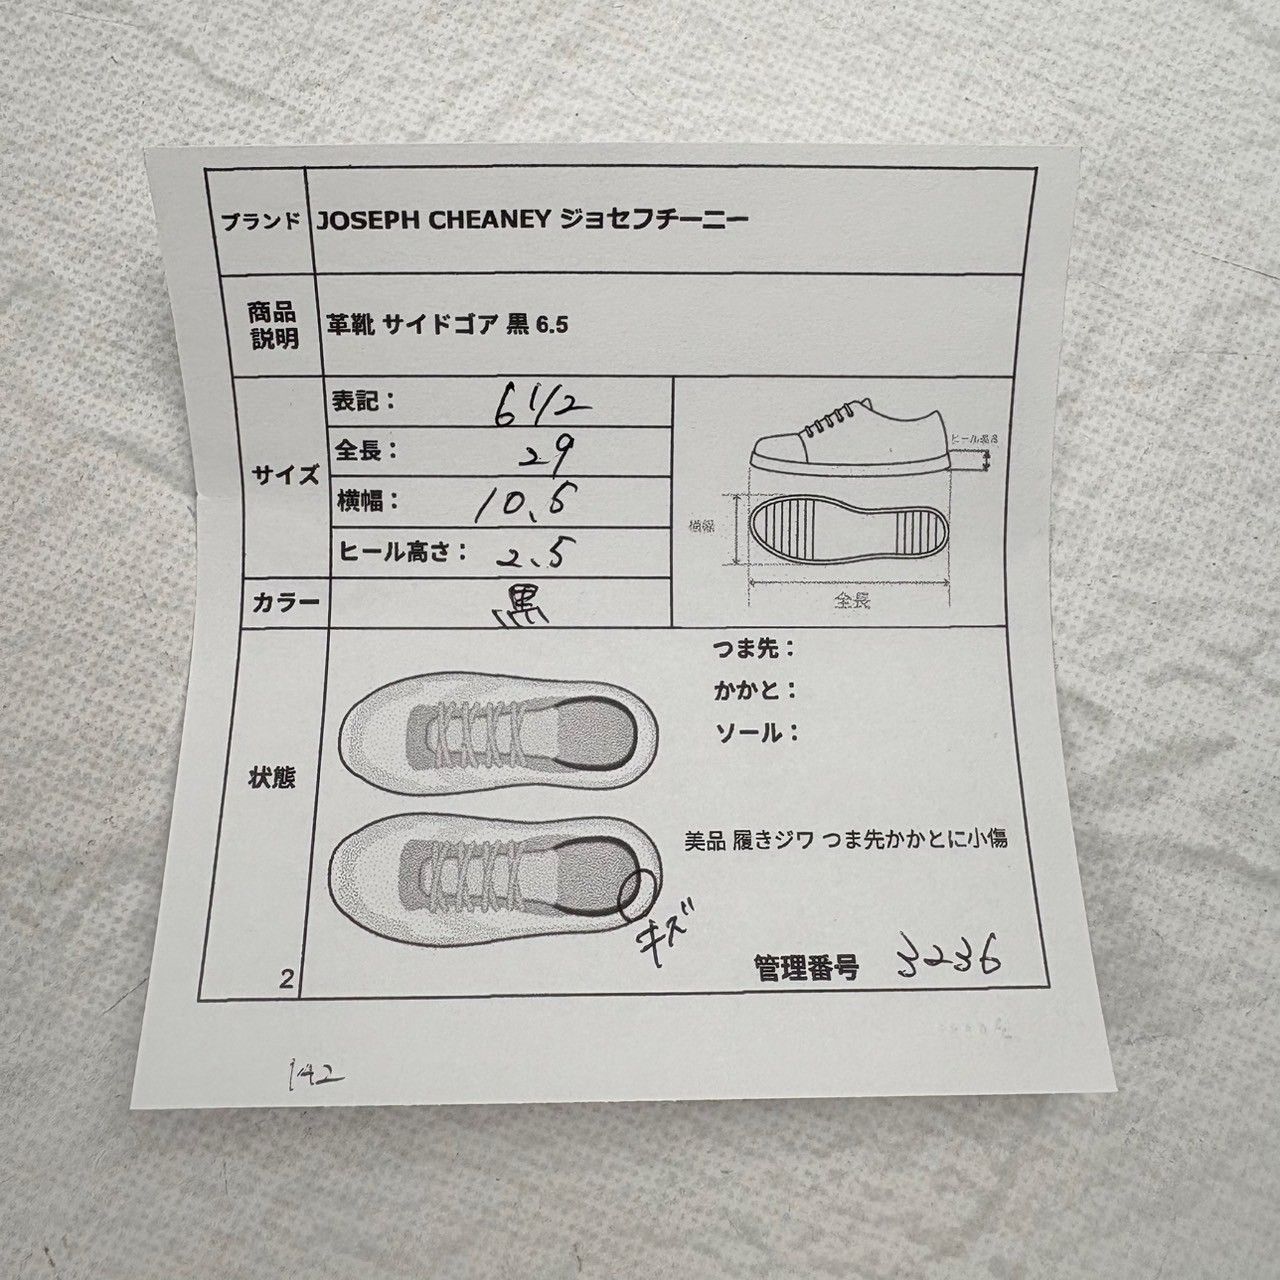 ブランド JOSEPH CHEANEY ジョセフチーニー
商品
説明
革靴 サイドゴア 黒 6.5
サイズ
表記： 6 1/2
全長： 29
横幅： 10.5
ヒール高さ： 2.5
ヒール高さ
横幅
全長
カラー 黒
状態
つま先：
かかと：
ソール：
美品 履きジワ つま先かかとに小傷
キズ
管理番号 3236
2
142